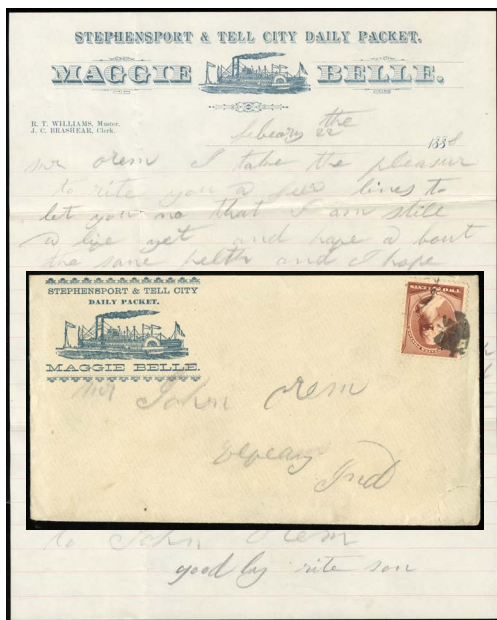 STEPHENSPORT & TELL CITY DAILY PACKET.
MAGGIE BELLE.
R. T. WILLIAMS, Master.
J. C. BRASHEAR, Clerk.
febeary the 22
1888
mr orem I take the pleasur
to rite you a few lines to
let you no that I am still
a live yet and have a bout
the same helth and I hope
STEPHENSPORT & TELL CITY
DAILY PACKET.
MAGGIE BELLE.
mr John orem
Ind
to John Orem
good by rite son